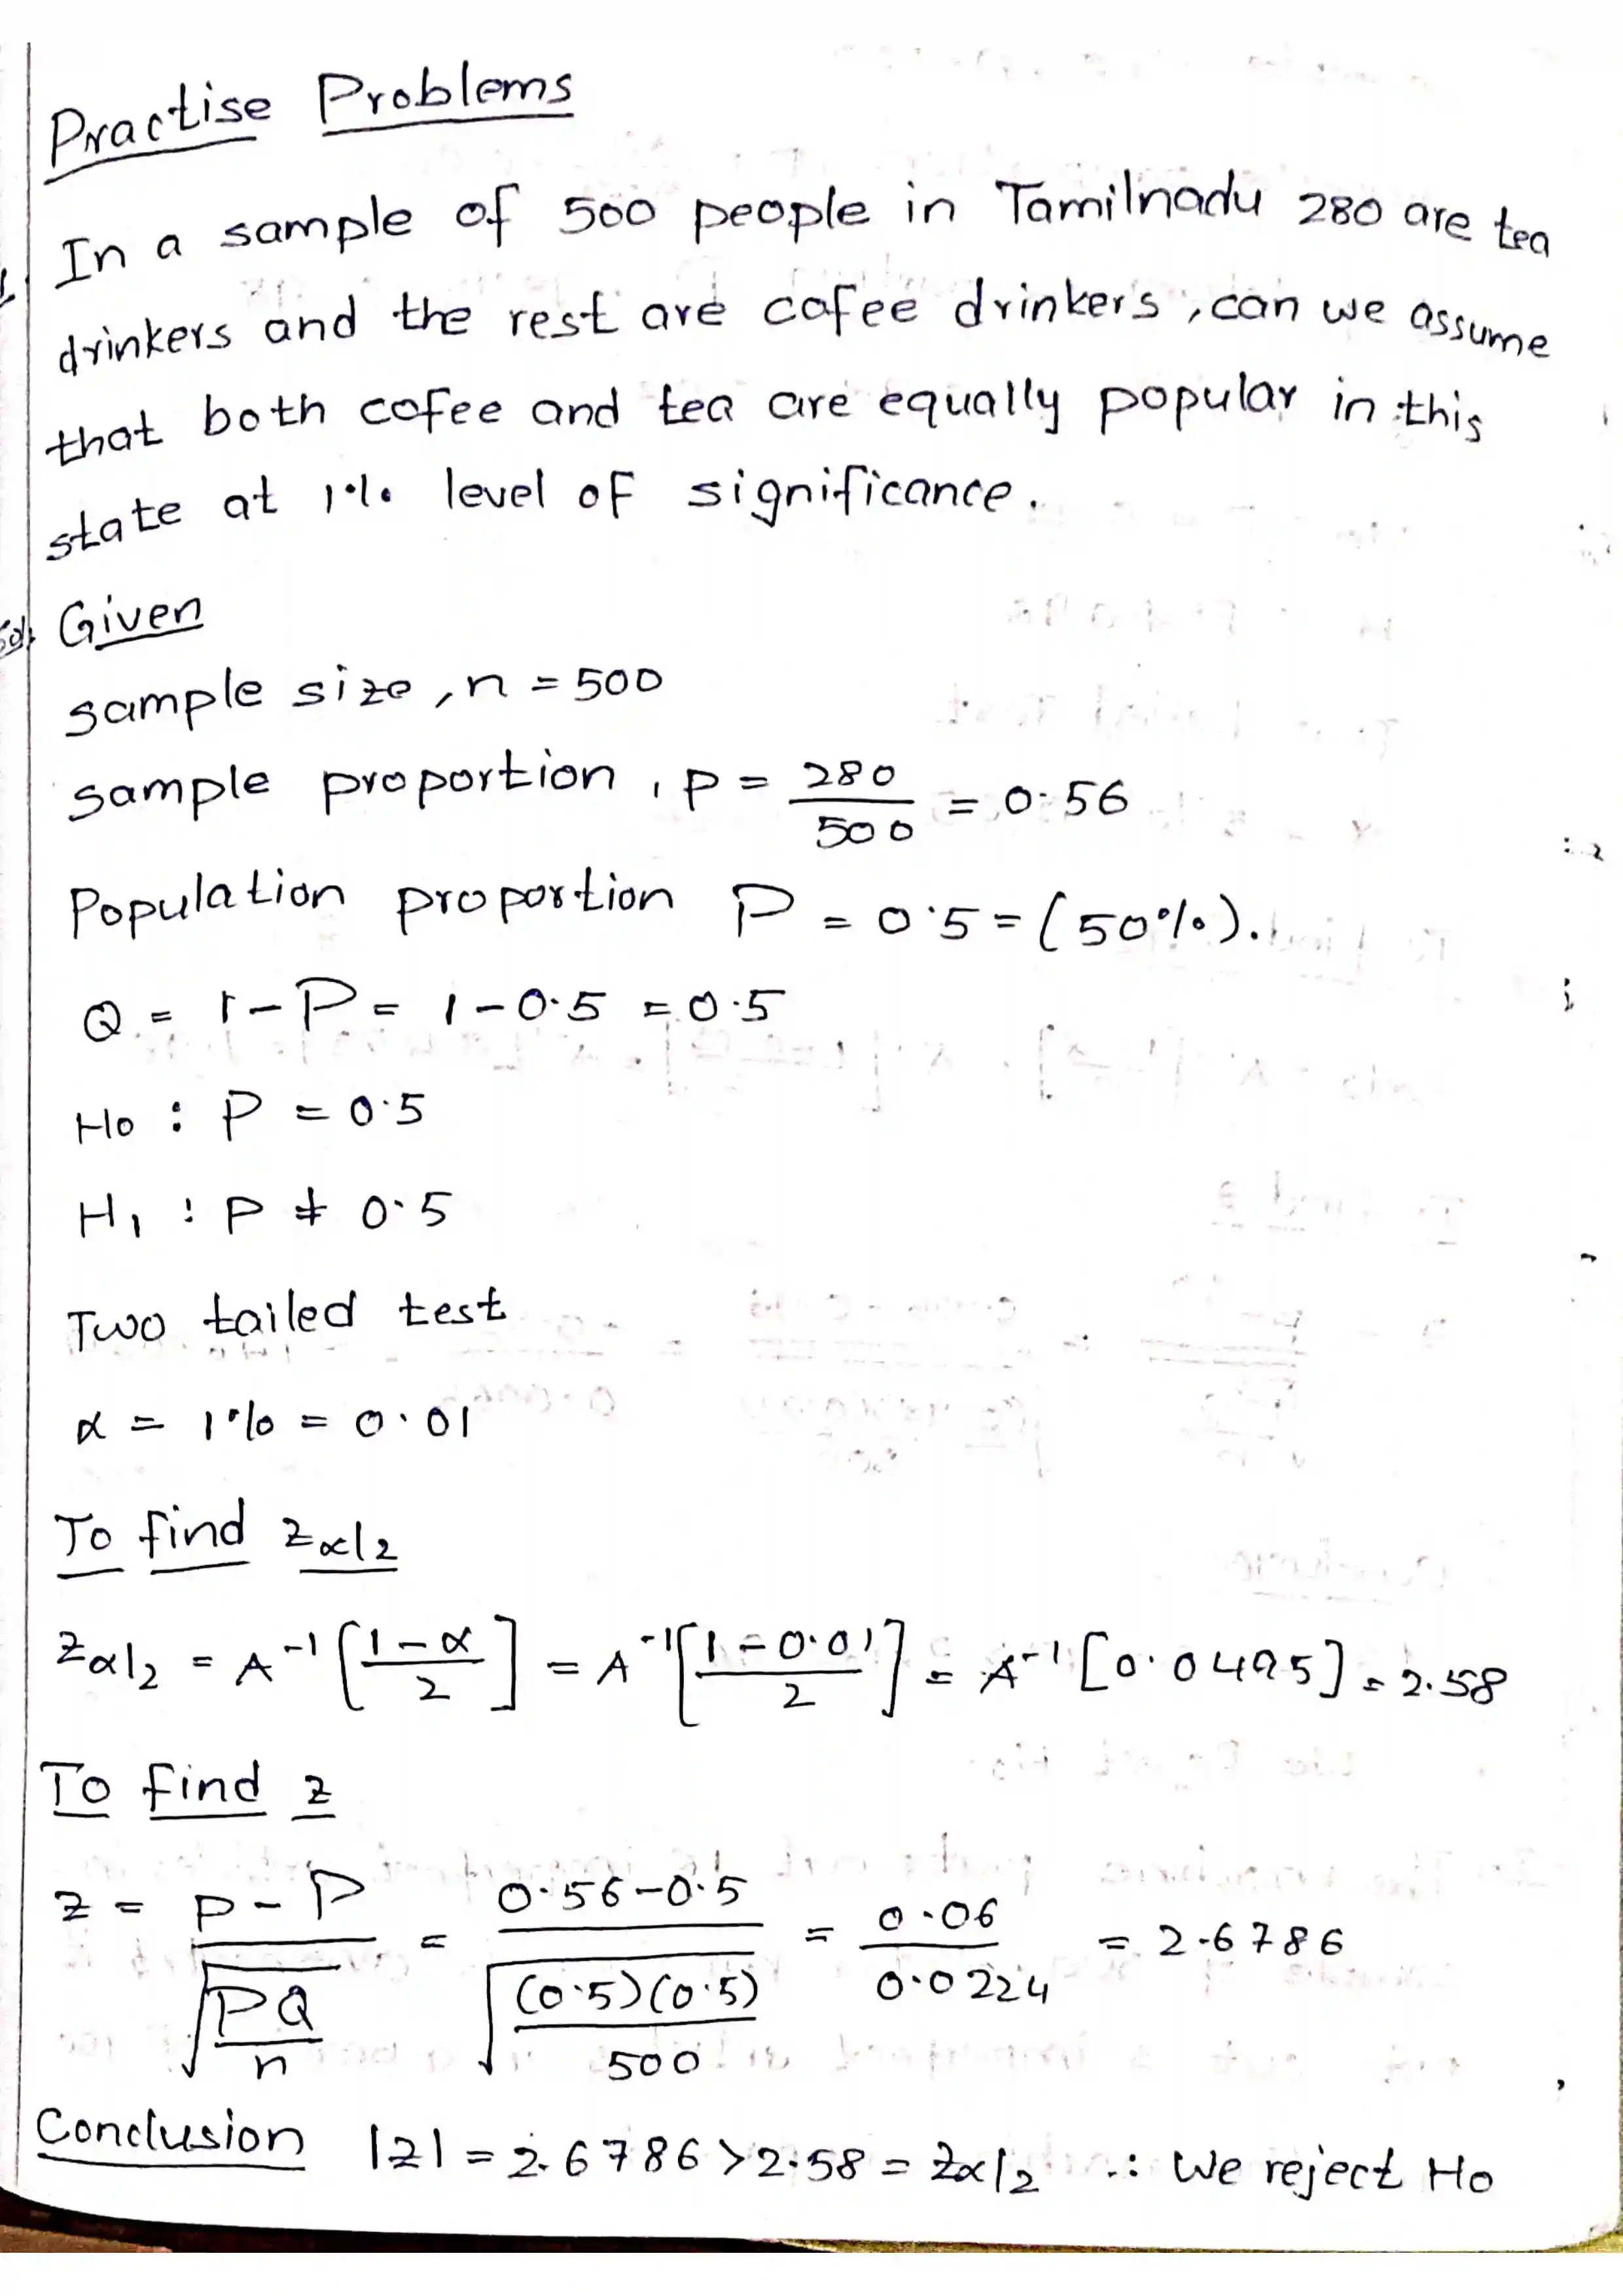 Practise Problems
1. In a sample of 500 people in Tamilnadu 280 are tea
drinkers and the rest are cofee drinkers, can we assume
that both cofee and tea are equally popular in this
state at 1% level of significance.
Sol: Given
sample size, n = 500
sample proportion, p = 280/500 = 0.56
Population proportion P = 0.5 = (50%).
Q = 1 - P = 1 - 0.5 = 0.5
H0 : P = 0.5
H1 : P ≠ 0.5
Two tailed test
α = 1% = 0.01
To find zα/2
zα/2 = A⁻¹[(1-α)/2] = A⁻¹[(1-0.01)/2] = A⁻¹[0.0495] = 2.58
To find z
z = (p - P)/√(PQ/n) = (0.56-0.5)/√((0.5)(0.5)/500) = 0.06/0.0224 = 2.6786
Conclusion |z| = 2.6786 > 2.58 = zα/2 ∴ We reject H0